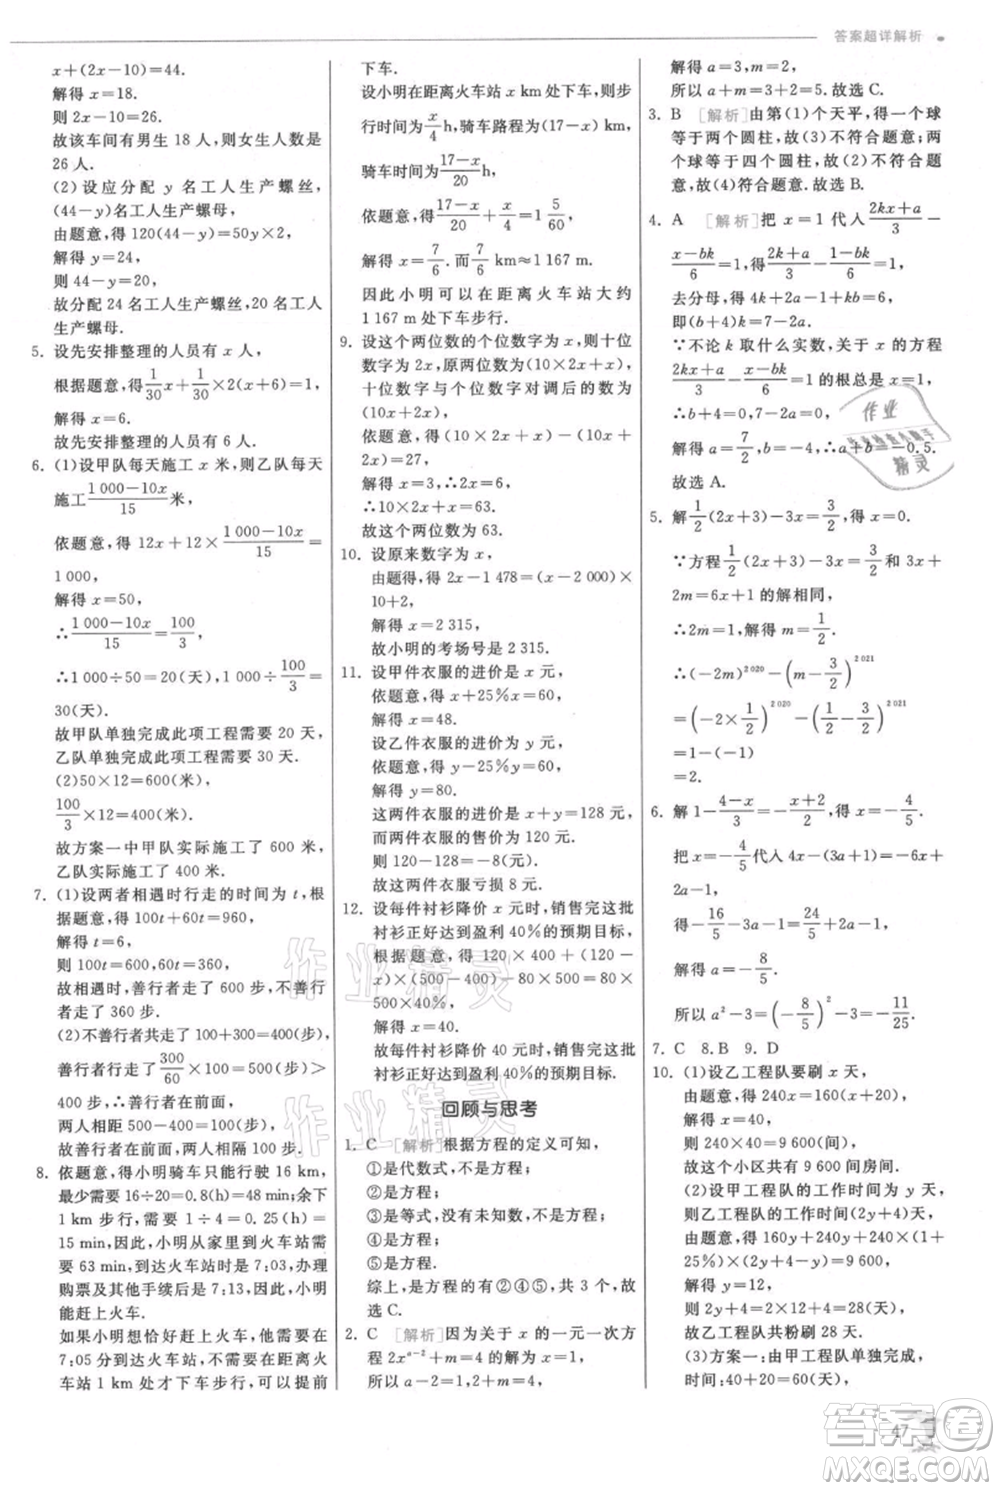 答案超详解析
x+(2x-10)=44.
解得 x=18.
则 2x-10=26.
故该车间有男生 18 人,则女生人数是
26 人.
(2)设应分配 y 名工人生产螺丝,
(44-y)名工人生产螺母.
由题意,得 120(44-y)=50y×2.
解得 y=24.
则 44-y=20.
故分配 24 名工人生产螺丝,20 名工
人生产螺母.
5. 设先安排整理的人员有 x 人,
根据题意,得 1/30 x+1/30×2(x+6)=1.
解得 x=6.
故先安排整理的人员有 6 人.
6. (1)设甲队每天施工 x 米,则乙队每天
施工 (1 000-10x)/15 米,
依题意,得 12x+12×(1 000-10x)/15=
1 000,
解得 x=50,
∴(1 000-10x)/15=100/3,
∴1 000÷50=20(天),1 000÷100/3=
30(天).
故甲队单独完成此项工程需要 20 天,
乙队单独完成此项工程需要 30 天.
(2)50×12=600(米),
100/3×12=400(米).
故方案一中甲队实际施工了 600 米,
乙队实际施工了 400 米.
7. (1)设两者相遇时行走的时间为 t,根
据题意,得 100t+60t=960,
解得 t=6,
则 100t=600,60t=360.
故相遇时,善行者走了 600 步,不善行
者走了 360 步.
(2)不善行者共走了 100+300=400(步),
善行者走了 300/60×100=500(步)>
400(步),故善行者在前面,
两人相距 500-400=100(步).
故善行者在前面,两人相隔 100 步.
8. 依题意,得小明骑车只能行驶 16 km,
最少需要 16÷20=0.8(h)=48 min;余下
1 km 步行,需要 1÷4=0.25(h)=
15 min,故小明从家里到火车站总共
需要 63 min,到火车站是 7:03,办理
购票及其他手续后是 7:13,所以小明
能赶上火车.
如果小明想恰好赶上火车,需要在
7:05 分到达火车站,所以小明在距火
车站 1 km 处才下车步行,可以提前
下车.
设小明在距离火车站 x km 处下车,则步
行时间为 x/4 h,骑车路程为(17-x)km,
骑车时间为 (17-x)/20 h,
依题意,得 (17-x)/20+x/4=1 5/60,
解得 x=7/6.而 7/6 km≈1 167 m.
因此小明可以在距离火车站大约
1 167 m 处下车步行.
9. 设这个两位数的个位数字为 x,则十位
数字为 2x,原两位数为(10×2x+x),
十位数字与个位数字对调后的数为
(10x+2x),
依题意,得(10×2x+x)-(10x+2x)=
27.
解得 x=3.
∴2x=6.
∴10×2x+x=63.
故这个两位数为 63.
10. 设原来数字为 x,
由题得,得 2x-1 478=(x-2 000)×
10+2,
解得 x=2 315,
故小明的考场号是 2 315.
11. 设甲件衣服的进价是 x 元,
依题意,得 x+25%x=60,
解得 x=48.
设乙件衣服的进价是 y 元,
依题意,得 y-25%y=60,
解得 y=80.
这两件衣服的进价是 x+y=128 元,
而两件衣服的售价为 120 元.
则 120-128=-8(元).
故这两件衣服亏损 8 元.
12. 设每件衬衫降价 x 元时,销售完这批
衬衫正好达到盈利 40%的预期目标.
根据题意,得 120×400+(120-
x)×(500-400)=80×500+80×
500×40%,
解得 x=40.
故每件衬衫降价 40 元时,销售完这批
衬衫正好达到盈利 40%的预期目标.
回顾与思考
1. C [解析]根据方程的定义可知,
①是代数式,不是方程;
②是方程;
③是等式,没有未知数,不是方程;
④是方程;
⑤是方程.
综上,是方程的是②④⑤,共 3 个.故
选 C.
2. C [解析]因为关于 x 的一元一次方
程 2x^(a-2)+m=4 的解为 x=1,
所以 a-2=1,2+m=4,
解得 a=3,m=2,
所以 a+m=3+2=5.故选 C.
3. B [解析]由第(1)个天平,得一个球
等于两个圆柱,故(1)不符合题意;两
个球等于四个圆柱,(2)不符合题
意,故(4)符合题意.故选 B.
4. A [解析]把 x=1 代入 (2kx+a)/3-
(x-bk)/6=1,得 (2k+a)/3-(1-bk)/6=1,
去分母,得 4k+2a-1+bk=6,
即(b+4)k=7-2a,
∵不论 k 取什么实数,关于 x 的方程
(2kx+a)/3-(x-bk)/6=1 的根总是 x=1,
∴b+4=0,7-2a=0,
解得 a=7/2,b=-4,∴a+b=-0.5.
故选 A.
5. 解 1/2(2x+3)-3x=3/2,得 x=0.
∵方程 1/2(2x+3)-3x=3/2 和
2m=6x+1 的解相同,
∴2m=1,解得 m=1/2.
∴(-2m)^2 020-(m-3/2)^2 021
=(-2×1/2)^2 020-(1/2-3/2)^2 021
=1-(-1)
=2.
6. 解 1-(4-x)/3=-(x+2)/2,得 x=-4/5.
把 x=-4/5 代入 4x-(3a+1)=-6x+
2a-1,
得-16/5-3a-1=24/5+2a-1,
解得 a=-8/5.
所以 a²-3=(-8/5)²-3=-11/25.
7. C 8. B 9. D
10. (1)设乙工程队要刷 x 天,
由题意,得 240x=160x+160×20.
解得 x=40.
则 240×40=9 600(间).
故这个小区共有 9 600 间房间.
(2)设甲工程队的工作时间为 y 天,
则乙工程队的工作时间为(2y+4)天.
由题意,得 160y+240y+240(1+
25%)×(2y+4-y)=9 600.
解得 y=12,
则 2y+4=2×12+4=28(天).
故乙工程队共粉刷 28 天.
(3)方案一:由甲工程队单独完成,
时间:40+20=60(天),
47
作业精灵
作业精灵
作业
精灵
答案圈
MXQE.COM